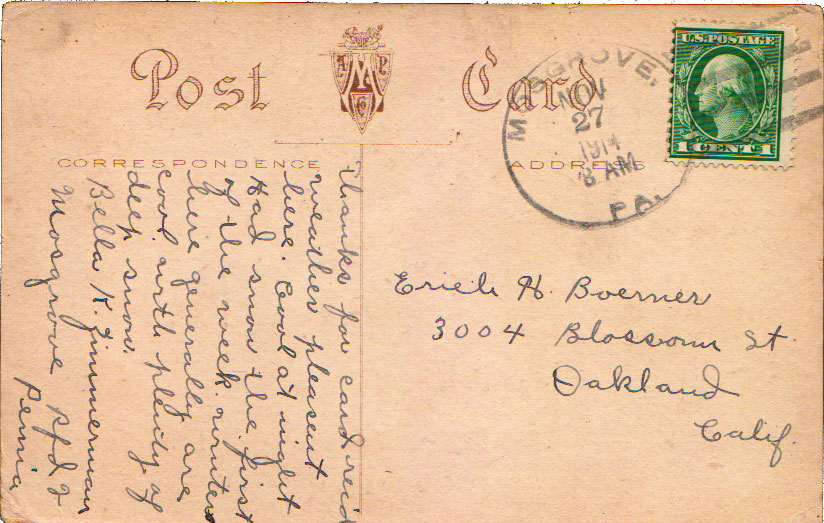 Post Card
A M P C
CORRESPONDENCE
ADDRESS
U.S. POSTAGE
1 CENTS 1
MOSGROVE,
NOV
27
1914
8 AM
PA.
Thanks for card rec'd
weather pleasent
here. Cool at night
Had snow the first
of the week. winters
here generally are
cool with plenty of
deep snow.
Bella K. Zimmerman
Mosgrove Rfd 2
Penna
Erich H. Boerner
3004 Blossom St.
Oakland
Calif.